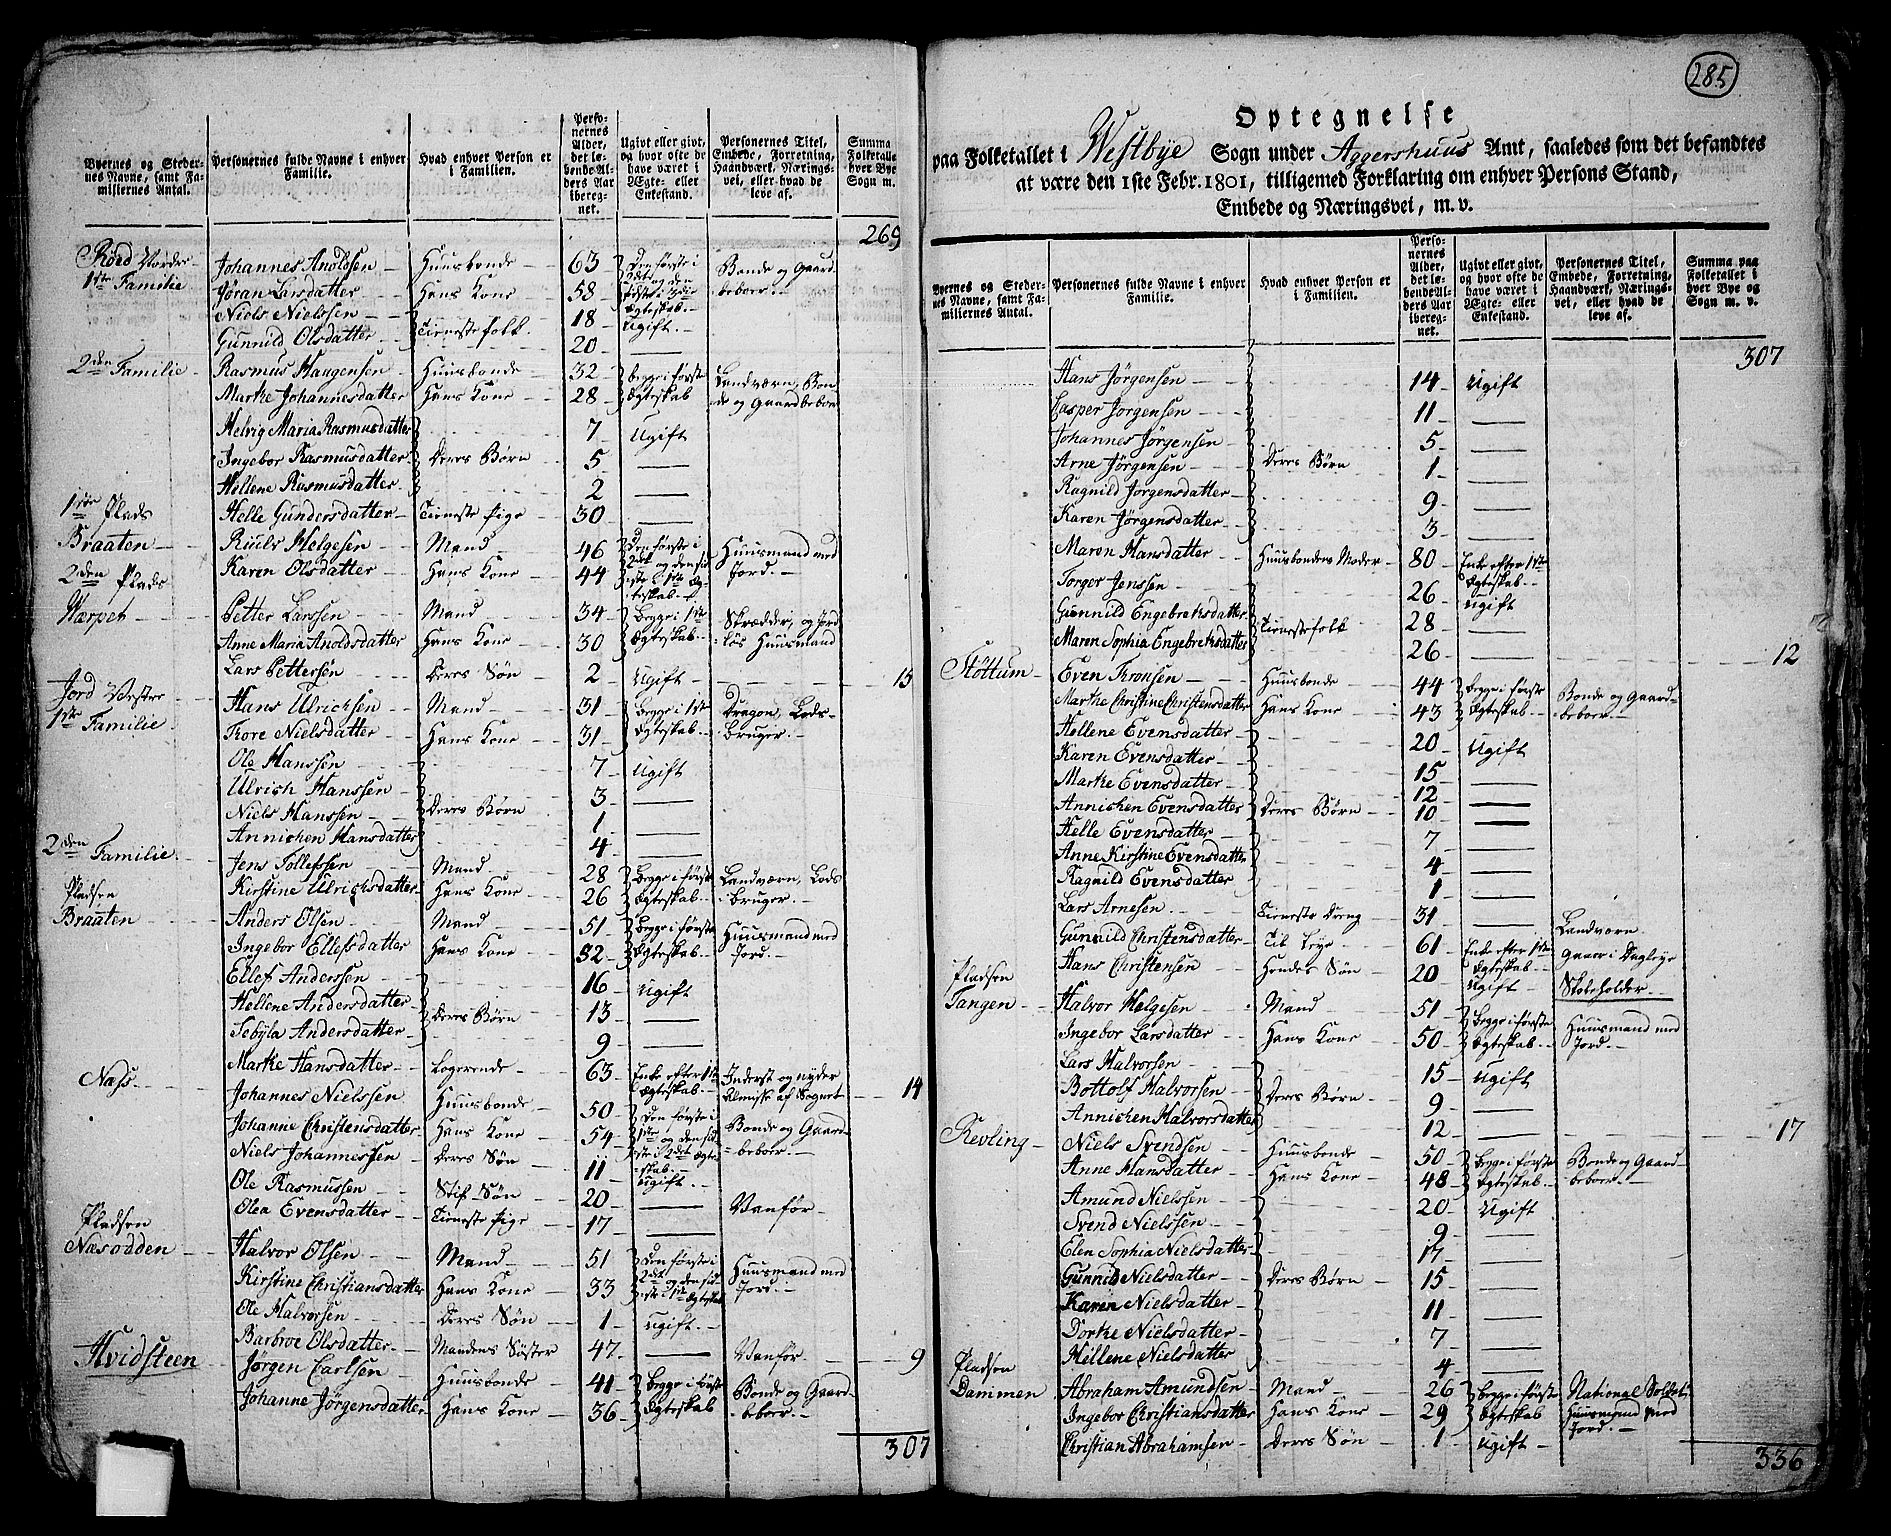 Byernes og Steder-
nes Navne, samt Fa-
miliernes Antal.
Personernes fulde Navne i enhver
Familie.
Hvad enhver Person er
i Familien.
Perso-
nernes
Alder,
det le-
bende Al-
ders Aar
ibereg-
net.
Ugivt eller givt,
og hvor ofte de
have været i
Ægte- eller
Enkestand.
Personernes Titel,
Embede, Forretning,
Haandværk, Nærings-
vei, eller hvad de
leve af.
Summa
Folketallet
hver Bye
Sogn m.
269
Nord
1ste Familie
Johannes Anoldsen Huusbonde 63 Den første i 2det og den sidste i 3die Ægteskab Bonde og Gaardbeboer
Jøran Larsdatter Hans Kone 58
Niels Nielssen Tienestefolk 18 Ugift
Gunnild Olsdatter 20 —
2den Familie Rasmus Haugensen Huusbonde 32 Begge i første Ægteskab Landværn, Bonde og Gaardbeboer
Marthe Johannesdatter Hans Kone 28
Helvig Maria Rasmusdatter 7 Ugift
Ingebor Rasmusdatter Deres Børn 5 —
Hellene Rasmusdatter 2 —
1ste Plads Helle Gundersdatter Tieneste Pige 30 —
Braaten Mand 46 Den første i 2det og den sidste i 1ste Ægteskab Huusmand med Jord
2den Plads Karen Olsdatter Hans Kone 44
Petter Larssen Mand 34 Begge i 1ste Ægteskab Skrædder, og jordløs Huusmand
Anne Maria Anoldsdatter Hans Kone 30
Lars Pettersen Deres Søn 2 Ugift 15
Jord Vestre
1ste Familie
Hans Ulrichsen Mand 31 Begge i 1ste Ægteskab Dragon, Lodsbruger
Tore Nielsdatter Hans Kone 31
Ole Hanssen 7 Ugift
Ulrich Hanssen 3 —
Niels Hanssen Deres Børn 1 —
Annichen Hansdatter 4 —
2den Familie Jens Tollefssen Mand 28 Begge i første Ægteskab Landværn, Lodsbruger
Kirstine Ulrichsdatter Hans Kone 26
Pladsen
Braaten Anders Olsen Mand 51 Begge i første Ægteskab Huusmand med Jord
Ingebor Ellefsdatter Hans Kone 52
Ellef Anderssen 16 Ugift
Hellene Andersdatter Deres Børn 13 —
Sebyla Andersdatter 9 —
Marthe Hansdatter Logerende 63 Enke efter 1ste Ægteskab Inderst og nyder Almisse af Sognet 14
Næss Johannes Nielssen Huusbonde 50 Den første i 1ste og den sidste i 2det Ægteskab Bonde og Gaardbeboer
Johanne Christensdatter Hans Kone 54
Niels Johannessen Deres Søn 11 Ugift
Ole Rasmussen Stif Søn 20 — Vanfør
Olea Evensdatter Tieneste Pige 17 —
Pladsen
Næsodden Halvor Olsen Mand 51 Den første i 2det og den sidste i 1ste Ægteskab Huusmand med Jord
Kirstine Christiansdatter Hans Kone 33
Ole Halvorsen Deres Søn 1 Ugift
Barbroe Olsdatter Mandens Søster 47 — Vanfør 9
Hvidsteen Jørgen Carlsen Huusbonde 41 Begge i første Ægteskab Bonde og Gaardbeboer
Johanne Jörgensdatter Hans Kone 36
307
285
Optegnelse
paa Folketallet i Westbye Sogn under Aggershuus Amt, saaledes som det befandtes
at være den 1ste Febr. 1801, tilligemed Forklaring om enhver Persons Stand,
Embede og Næringsvei, m. v.
Byernes og Steder-
nes Navne, samt Fa-
miliernes Antal.
Personernes fulde Navne i enhver
Familie.
Hvad enhver Person er
i Familien.
Perso-
nernes
Alder,
det le-
bende Al-
ders Aar
ibereg-
net.
Ugivt eller givt,
og hvor ofte de
have været i
Ægte- eller
Enkestand.
Personernes Titel,
Embede, Forretning,
Haandværk, Nærings-
vei, eller hvad de
leve af.
Summa paa
Folketallet i
hver Bye og
Sogn m. v.
307
Hans Jörgensen 14 Ugift
Casper Jørgensen 11 —
Johannes Jørgensen 5 —
Arne Jørgensen Deres Børn 1 —
Ragnild Jørgensdatter 9 —
Karen Jørgensdatter 3 —
Maren Hansdatter Huusbondens Moder 80 Enke efter 1ste Ægteskab
Torger Jenssen 26 Ugift
Gunnild Engebretsdatter Tienestefolk 28 —
Maren Sophia Engebretsdatter 26 — 12
Støttum Even Tronsen Huusbonde 44 Begge i første Ægteskab Bonde og Gaardbeboer
Marthe Christine Christensdatter Hans Kone 43
Hellene Evensdatter 20 Ugift
Karen Evensdatter 15 —
Marthe Evensdatter 12 —
Annichen Evensdatter Deres Børn 10 —
Helle Evensdatter 7 —
Anne Kirstine Evensdatter 4 —
Ragnild Evensdatter 1 —
Lars Arnesen Tieneste Dreng 31 — Landværn
Gunnild Christensdatter Til Leye 61 Enke efter 1ste Ægteskab Gaaer i Dagleye
Hans Christensen Hendes Søn 20 Ugift Skoleholder
Pladsen
Tangen Halvor Helgesen Mand 51 Begge i første Ægteskab Huusmand med Jord
Ingebor Larsdatter Hans Kone 50
Lars Halvorsen 15 Ugift
Bottolf Halvorsen Deres Børn 9 —
Annichen Halvorsdatter 12 — 17
Revling Niels Svendsen Huusbonde 50 Begge i første Ægteskab Bonde og Gaardbeboer
Anne Hansdatter Hans Kone 48
Amund Nielssen 20 Ugift
Svend Nielssen 9 —
Elen Sophia Nielsdatter 17 —
Gunnild Nielsdatter Deres Børn 15 —
Karen Nielsdatter 11 —
Dorthe Nielsdatter 7 —
Hellene Nielsdatter 4 —
Pladsen
Dammen Abraham Amundsen Mand 26 Begge i første Ægteskab National Soldat Huusmand med Jord
Ingebor Christiansdatter Hans Kone 29
Christian Abrahamsen Deres Søn 1 Ugift
336